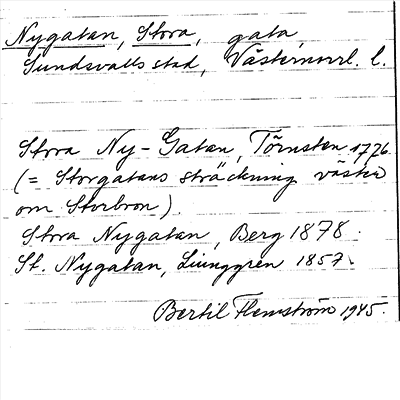 Nygatan, Stora, gata,
Sundsvalls stad, Västernorrl. l.
Stora Ny-Gatan, Törnsten 1776.
(= Storgatans sträckning väster
om Storbron).
Stora Nygatan, Berg 1878.
St. Nygatan, Ljunggren 1857.
Bertil Flemström 1945.